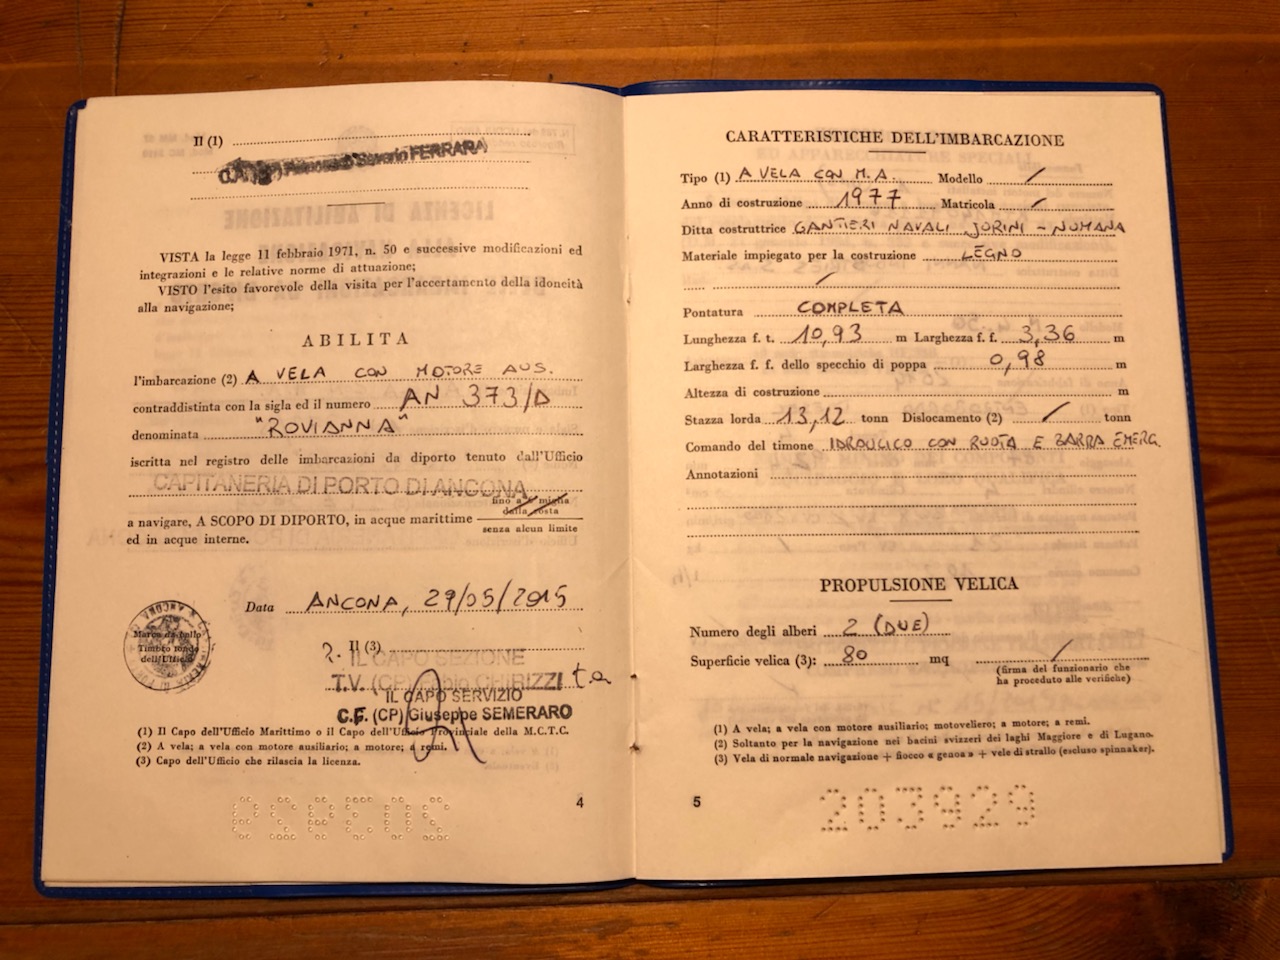 Il (1)
Severio FERRARA)
VISTA la legge 11 febbraio 1971, n. 50 e successive modificazioni ed
integrazioni e le relative norme di attuazione;
VISTO l'esito favorevole della visita per l'accertamento della idoneità
alla navigazione;
ABILITA
l'imbarcazione (2) A VELA CON MOTORE AUS.
contraddistinta con la sigla ed il numero AN 373/D
denominata "ROVIANNA"
iscritta nel registro delle imbarcazioni da diporto tenuto dall'Ufficio
CAPITANERIA DI PORTO DI ANCONA
fino a 6 miglia
dalla costa
a navigare, A SCOPO DI DIPORTO, in acque marittime
senza alcun limite
ed in acque interne.
Data ANCONA, 29/05/2015
Marca da bollo
Timbro tondo
dell'Ufficio
Il (3)
IL CAPO SEZIONE
T.V. (CP)
IL CAPO SERVIZIO
C.F. (CP) Giuseppe SEMERARO
(1) Il Capo dell'Ufficio Marittimo o il Capo dell'Ufficio Provinciale della M.C.T.C.
(2) A vela; a vela con motore ausiliario; a motore; a remi.
(3) Capo dell'Ufficio che rilascia la licenza.
4
CARATTERISTICHE DELL'IMBARCAZIONE
Tipo (1) A VELA CON M.A. Modello /
Anno di costruzione 1977 Matricola /
Ditta costruttrice CANTIERI NAVALI JORINI - NUMANA
Materiale impiegato per la costruzione LEGNO
/
Pontatura COMPLETA
Lunghezza f. t. 10,93 m Larghezza f. f. 3,36 m
Larghezza f. f. dello specchio di poppa 0,98 m
Altezza di costruzione m
Stazza lorda 13,12 tonn Dislocamento (2) / tonn
Comando del timone IDRAULICO CON RUOTA E BARRA EMERG.
Annotazioni
PROPULSIONE VELICA
Numero degli alberi 2 (DUE)
Superficie velica (3): 80 mq /
(firma del funzionario che
ha proceduto alle verifiche)
(1) A vela; a vela con motore ausiliario; motoveliero; a motore; a remi.
(2) Soltanto per la navigazione nei bacini svizzeri dei laghi Maggiore e di Lugano.
(3) Vela di normale navigazione + fiocco « genoa » + vele di strallo (escluso spinnaker).
5
203929